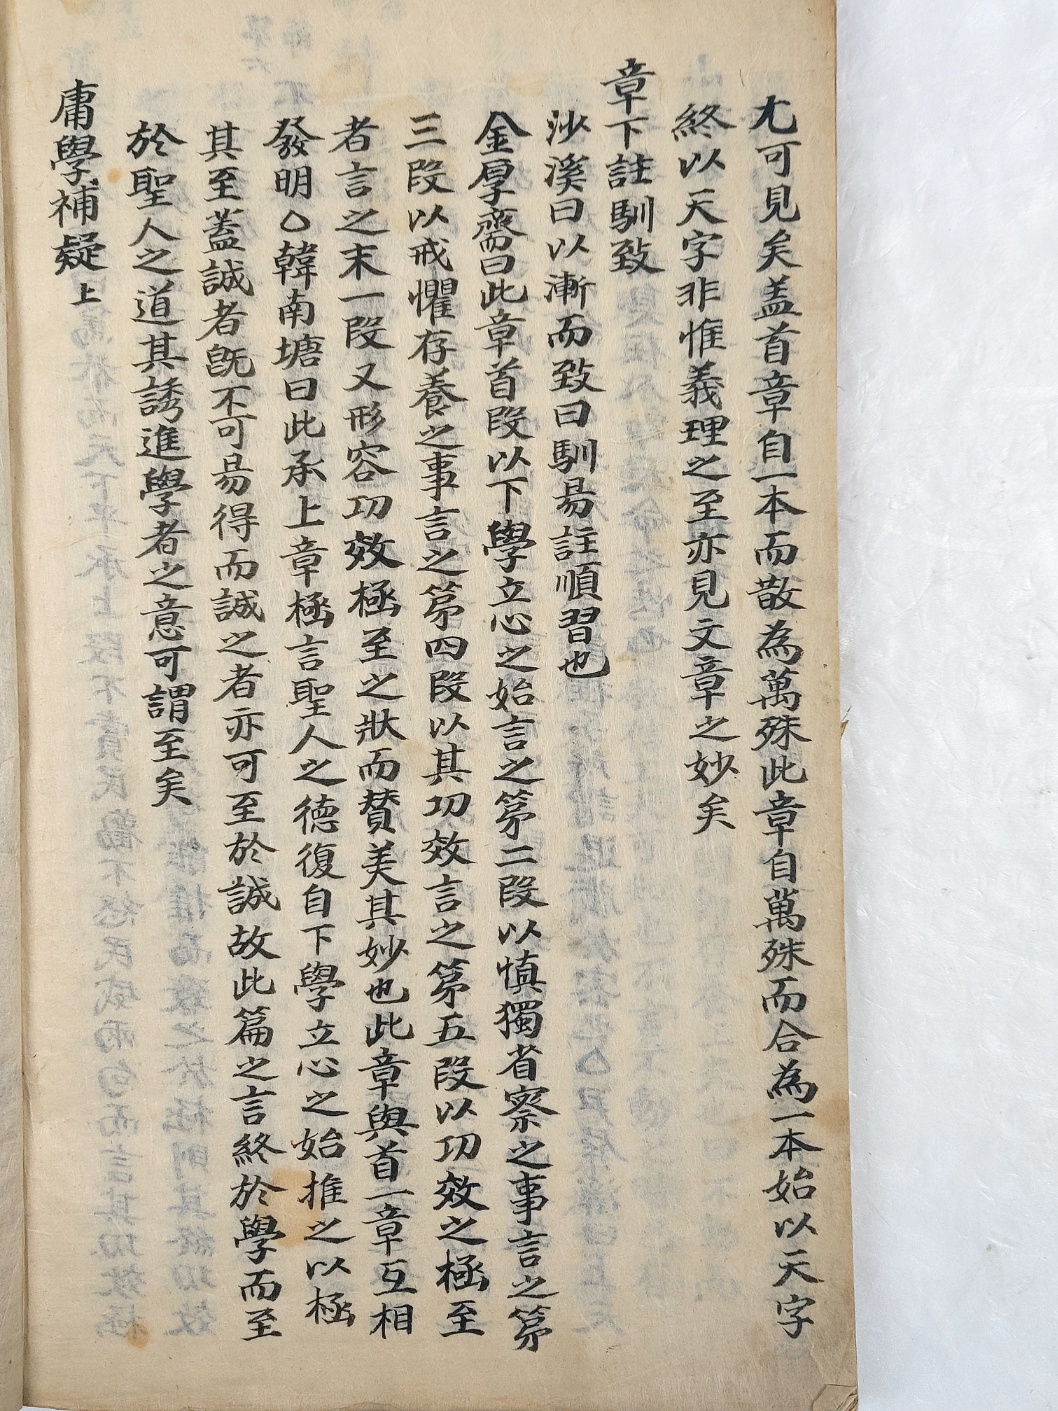 尤可見矣盖首章自一本而散為萬殊此章自萬殊而合為一本始以天字
終以天字非惟義理之至亦見文章之妙矣
章下註馴致
沙溪曰以漸而致曰馴昜註順習也
金厚齋曰此章首段以下學立心之始言之第二段以慎獨省察之事言之第
三段以戒懼存養之事言之第四段以其功效言之第五段以功效之極至
者言之末一段又形容功效極至之狀而賛美其妙也此章與首一章互相
發明○韓南塘曰此承上章極言聖人之德復自下學立心之始推之以極
其至盖誠者旣不可昜得而誠之者亦可至於誠故此篇之言終於學而至
於聖人之道其誘進學者之意可謂至矣
庸學補疑上